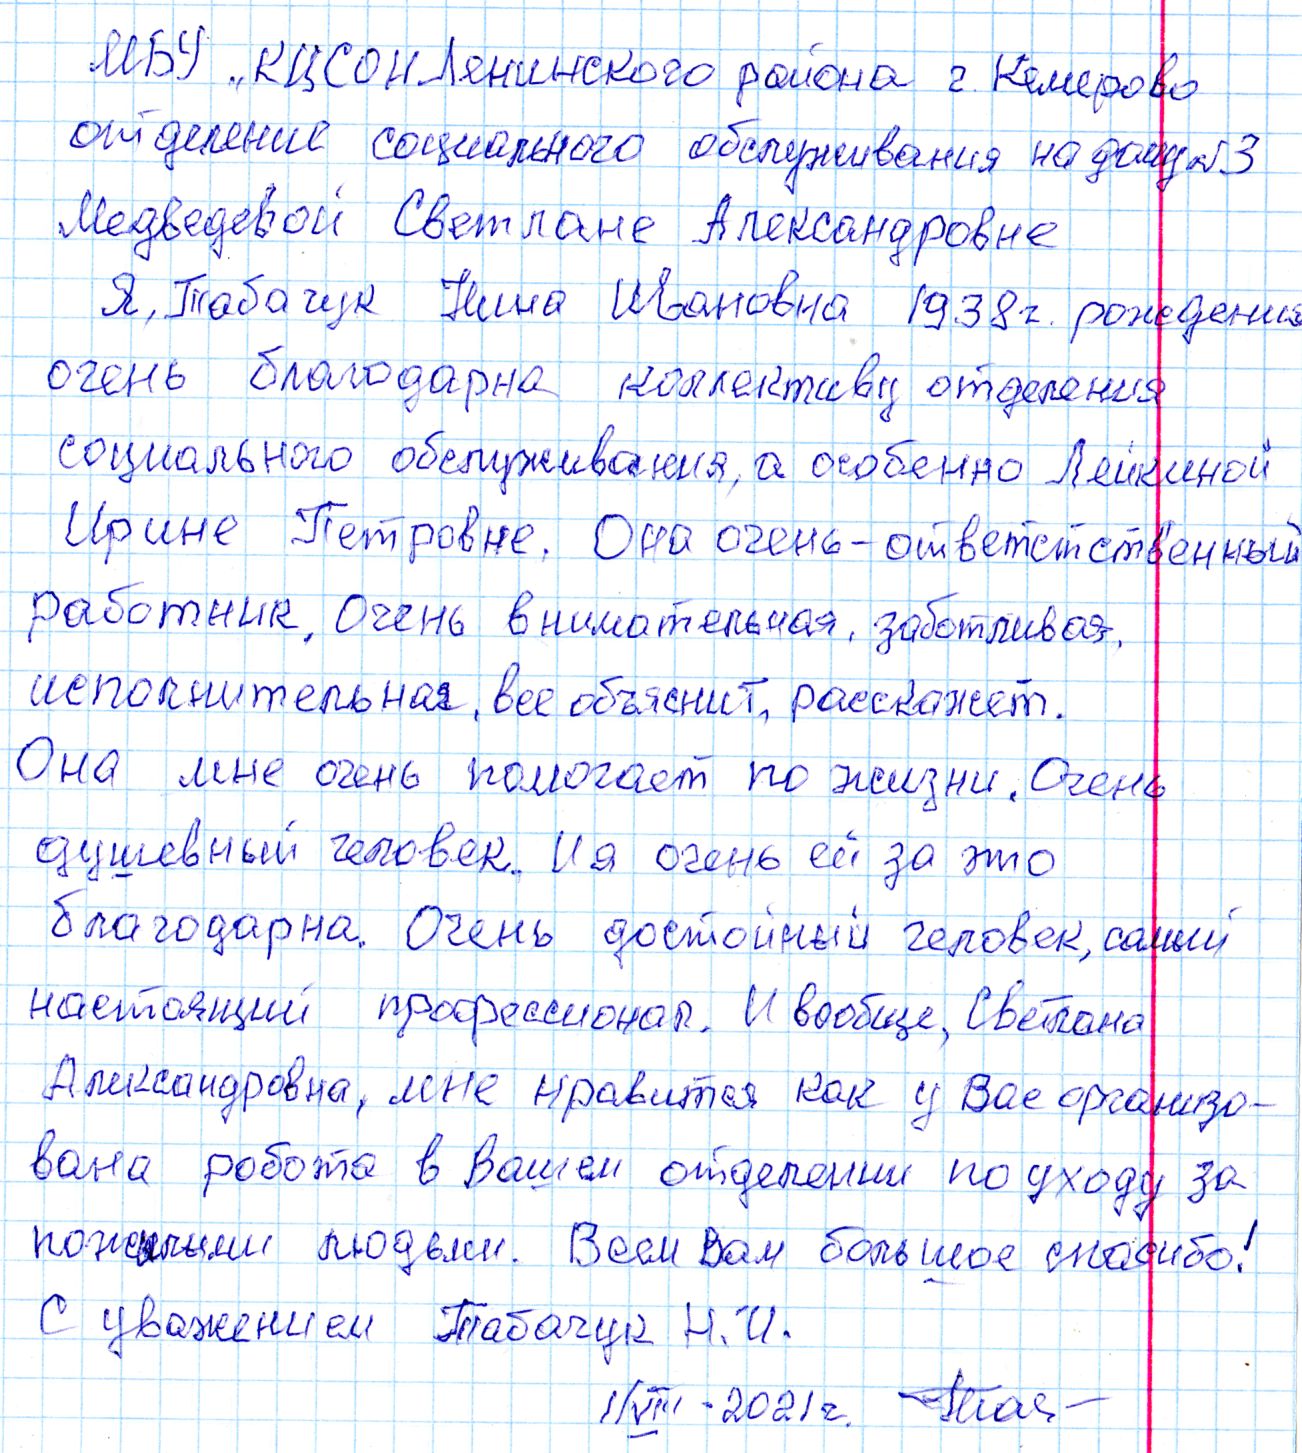 МБУ „КЦСОН Ленинского района г. Кемерово
отделение социального обслуживания на дому №3
Медведевой Светлане Александровне
Я, Табачук Нина Ивановна 1938г. рождения
очень благодарна коллективу отделения
социального обслуживания, а особенно Лейкиной
Ирине Петровне. Она очень – ответстственный
работник. Очень внимательная, заботливая,
исполнительная, все объяснит, расскажет.
Она мне очень помогает по жизни. Очень
душевный человек. И я очень ей за это
благодарна. Очень достойный человек, самый
настоящий профессионал. И вообще, Светлана
Александровна, мне нравится как у Вас организо-
вана работа в Вашем отделении по уходу за
пожилыми людьми. Всем Вам большое спасибо!
С уважением Табачук Н.И.
2021г.